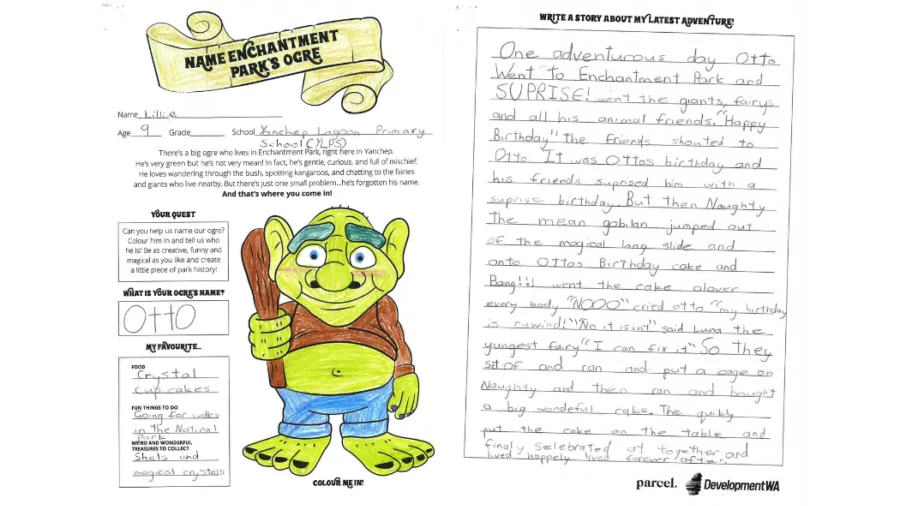 NAME ENCHANTMENT
PARK'S OGRE
Name Lillie
Age 9 Grade School Yanchep Lagoon Primary
School (YLPS)
There's a big ogre who lives in Enchantment Park, right here in Yanchep.
He's very green but he's not very mean! In fact, he's gentle, curious, and full of mischief.
He loves wandering through the bush, spotting kangaroos, and chatting to the fairies
and giants who live nearby. But there's just one small problem...he's forgotten his name.
And that's where you come in!
YOUR QUEST
Can you help us name our ogre?
Colour him in and tell us who
he is! Be as creative, funny and
magical as you like and create
a little piece of park history!
WHAT IS YOUR OGRE'S NAME?
Otto
MY FAVOURITE...
FOOD
Crystal
cup cakes
FUN THINGS TO DO
Going for walks
in the Natural
Park
WEIRD AND WONDERFUL
TREASURES TO COLLECT
Shels und
magical crystals
COLOUR ME IN!
WRITE A STORY ABOUT MY LATEST ADVENTURE!
One adventurous day Otto
Went to Enchantment Park and
SUPRISE! went the giants, fairys
and all his animal friends. "Happy
Birthday" the friends shouted to
Otto. It was Ottos birthday and
his friends suprized him with a
suprise birthday. But then Naughty
the mean goblian jumped out
of the magical long slide and
onto Ottos Birthday cake and
Bang!!! went the cake alover
every body "NOOO" cried otto "my birthday
is ruwind!" "No it isint" said Luna the
yungest fairy "I can fix it" So they
set of and ran and put a cage on
Naughty and then ran and bought
a big wondeful cake. The quikly
put the cake on the table and
finaly seelebrated at together and
lived happely lived forever after.
parcel. DevelopmentWA